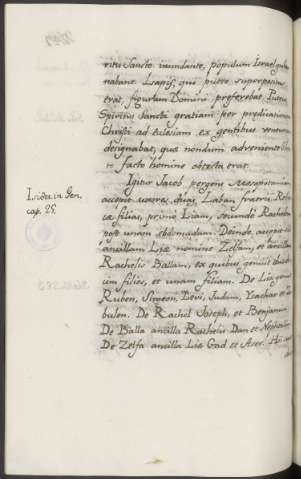 ritu Sancto inundante, populum Israel guber
nabant. Lapis, qui puteo superpositus
erat, figuram Domini preferebat. Puteus
Spiritus Sancti gratiam per predicationem
Christi ad Eclesiam ex gentibus venturam
designabat, quæ nondum adveniente
facto homine obtecta erat.
Igitur Jacob pergens Mesopotamiam
accepit uxores duas, Laban, fratris Rebe
cæ filias, primo Liam, secundo Rachelem
post unam ebdomadam. Deinde accepit
ancillam Liæ nomine Zelfam, et ancillam
Rachelis Ballam, ex quibus genuit duode
cim filios, et unam filiam. De Lia genuit
Ruben, Simeon, Levi, Judam, Ysachar et Za
bulon. De Rachel Joseph, et Benjamin
De Balla ancilla Rachelis Dan et Neptalim
De Zelfa ancilla Liæ Gad et Aser. Hi
Isidor. in Gen.
cap. 25.